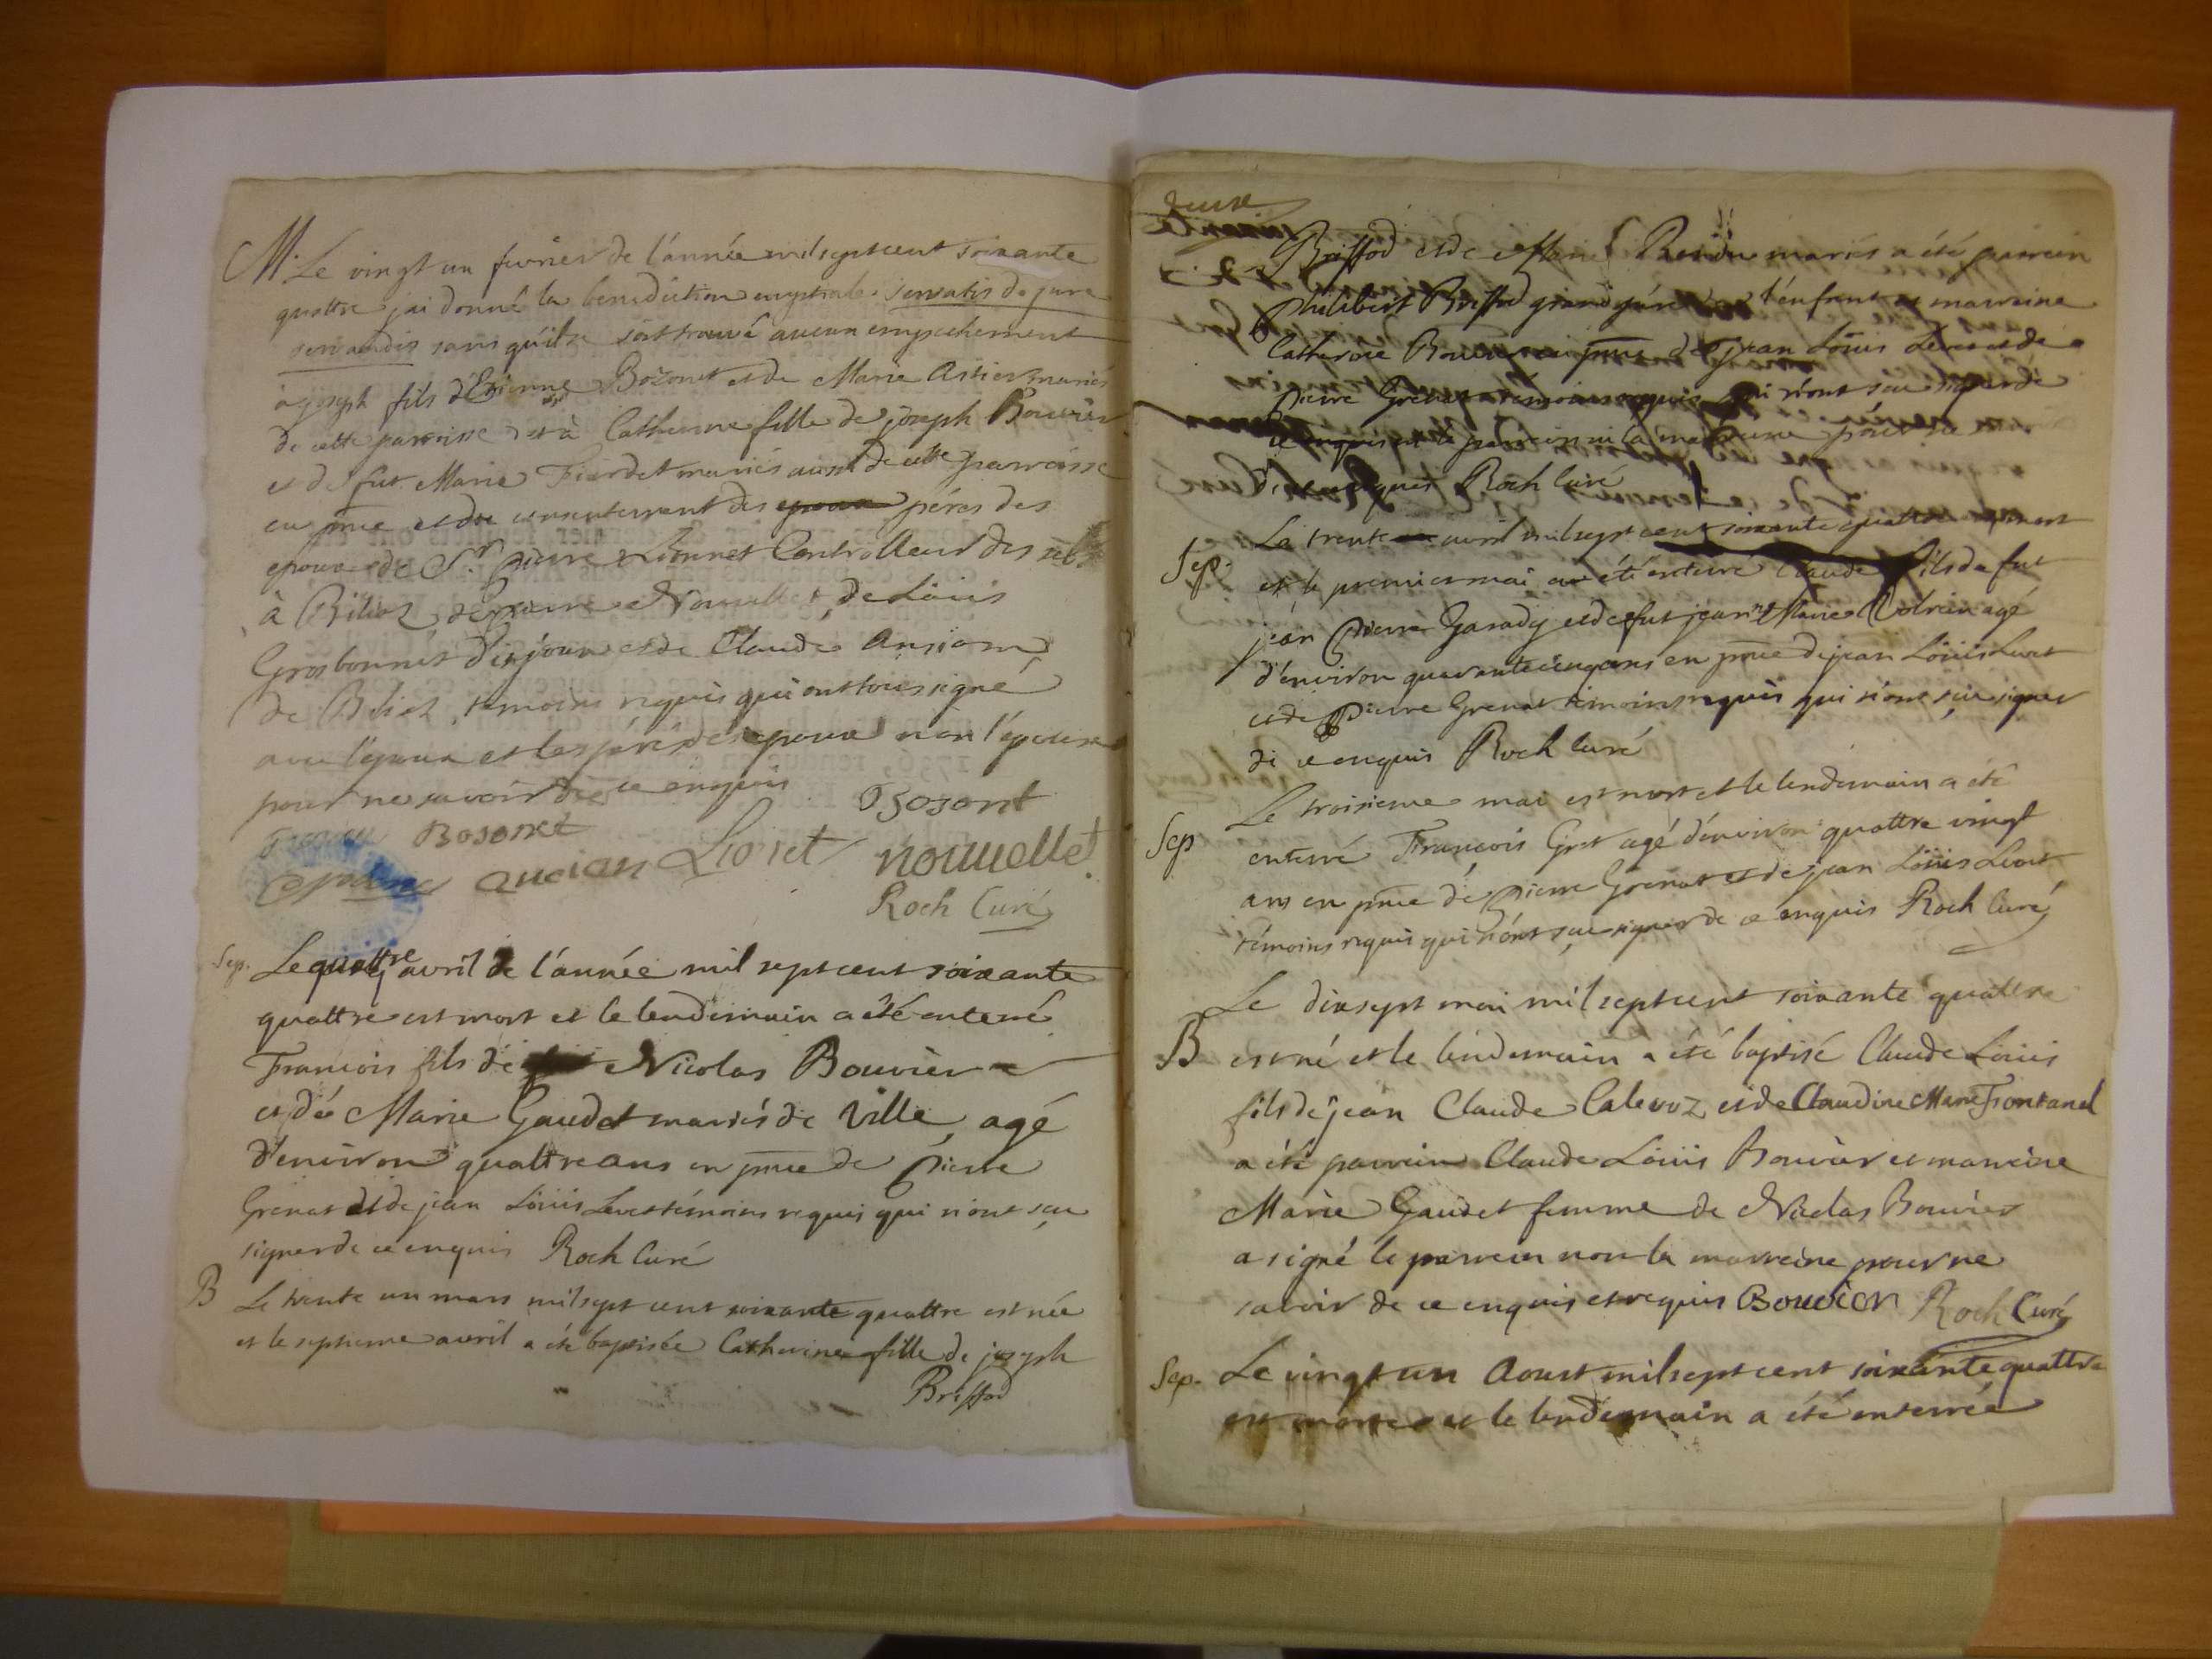 M. Le vingt un fevrier de l'année mil sept cent soixante
quattre j'ai donné la benediction nuptiale servatis de jure
servandis sans qu'il se soit trouvé aucun empechement
à joseph fils d'Etienne Bozonet et de Marie Astier mariés
de cette parroisse et à Catherine fille de joseph Bouvier
et de fut Marie Fiardet mariés aussi de cette parroisse
en pnce et du consentement des epoux péres des
epoux et de Sr. pierre Lionnet Controlleur des
à Biliaz de pierre Nouvellet, de Louis
Grosbonnet d'injoux et de Claude Ansian
de Biliaz, témoins requis qui ont tous signé
avec l'epoux et les péres des epoux non l'épouse
pour ne savoir de ce enquis Bosont
Bosonet
ancian Lionet nouuellet
Roch Curé
Sep. Le quattre avril de l'année mil sept cent soixante
quattre est mort et le lendemain a été enterré
Francois fils de Nicolas Bouvier
et de Marie Gaudet mariés de Ville, agé
d'environ quattre ans en pnce de Pierre
Grenat et de jean Louis Levet témoins requis qui n'ont sçu
signer de ce enquis Roch Curé
B Le trente un mars mil sept cent soixante quattre est née
et le septieme avril a été baptisée Catherine fille de joseph
Briffod
Briffod et de Marie Rendu mariés a été parrein
philibert Briffod grand pére de l'enfant et marreine
Catherine Bouvier en pnce de jean Louis Levet et de
pierre Grenat témoins requis qui n'ont sçu signer de
ce enquis et le parrein ni la marreine pour ne
de ce enquis Roch Curé
Sep. Le trente avril mil sept cent soixante quattre est mort
et le premier mai a été enterré Claude fils de fut
jean Pierre Garady et de fut jeanne Marie agé
d'environ quarante cinq ans en pnce de jean Louis Levet
et de Pierre Grenat témoins requis qui n'ont sçu signer
de ce enquis Roch Curé
Sep Le troisieme mai est mort et le lendemain a été
enterré Francois Gret agé d'environ quattre vingt
ans en pnce de pierre Grenat et de jean Louis Levet
témoins requis qui n'ont sçu signer de ce enquis Roch Curé
Le dix sept mai mil sept cent soixante quattre
B est né et le lendemain a été baptisé Claude Louis
fils de jean Claude Calevoz et de Claudine Marie Fontanel
a été parrein Claude Louis Bouvier et marreine
Marie Gaudet femme de Nicolas Bouvier
a signé le parrein non la marreine pour ne
savoir de ce enquis et requis Bouvier Roch Curé
Sep. Le vingt un Aoust mil sept cent soixante quattre
est morte et le lendemain a été enterrée